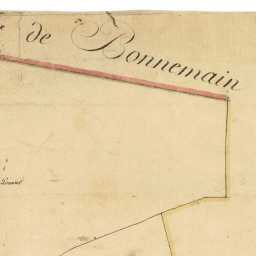 de Bonnemain